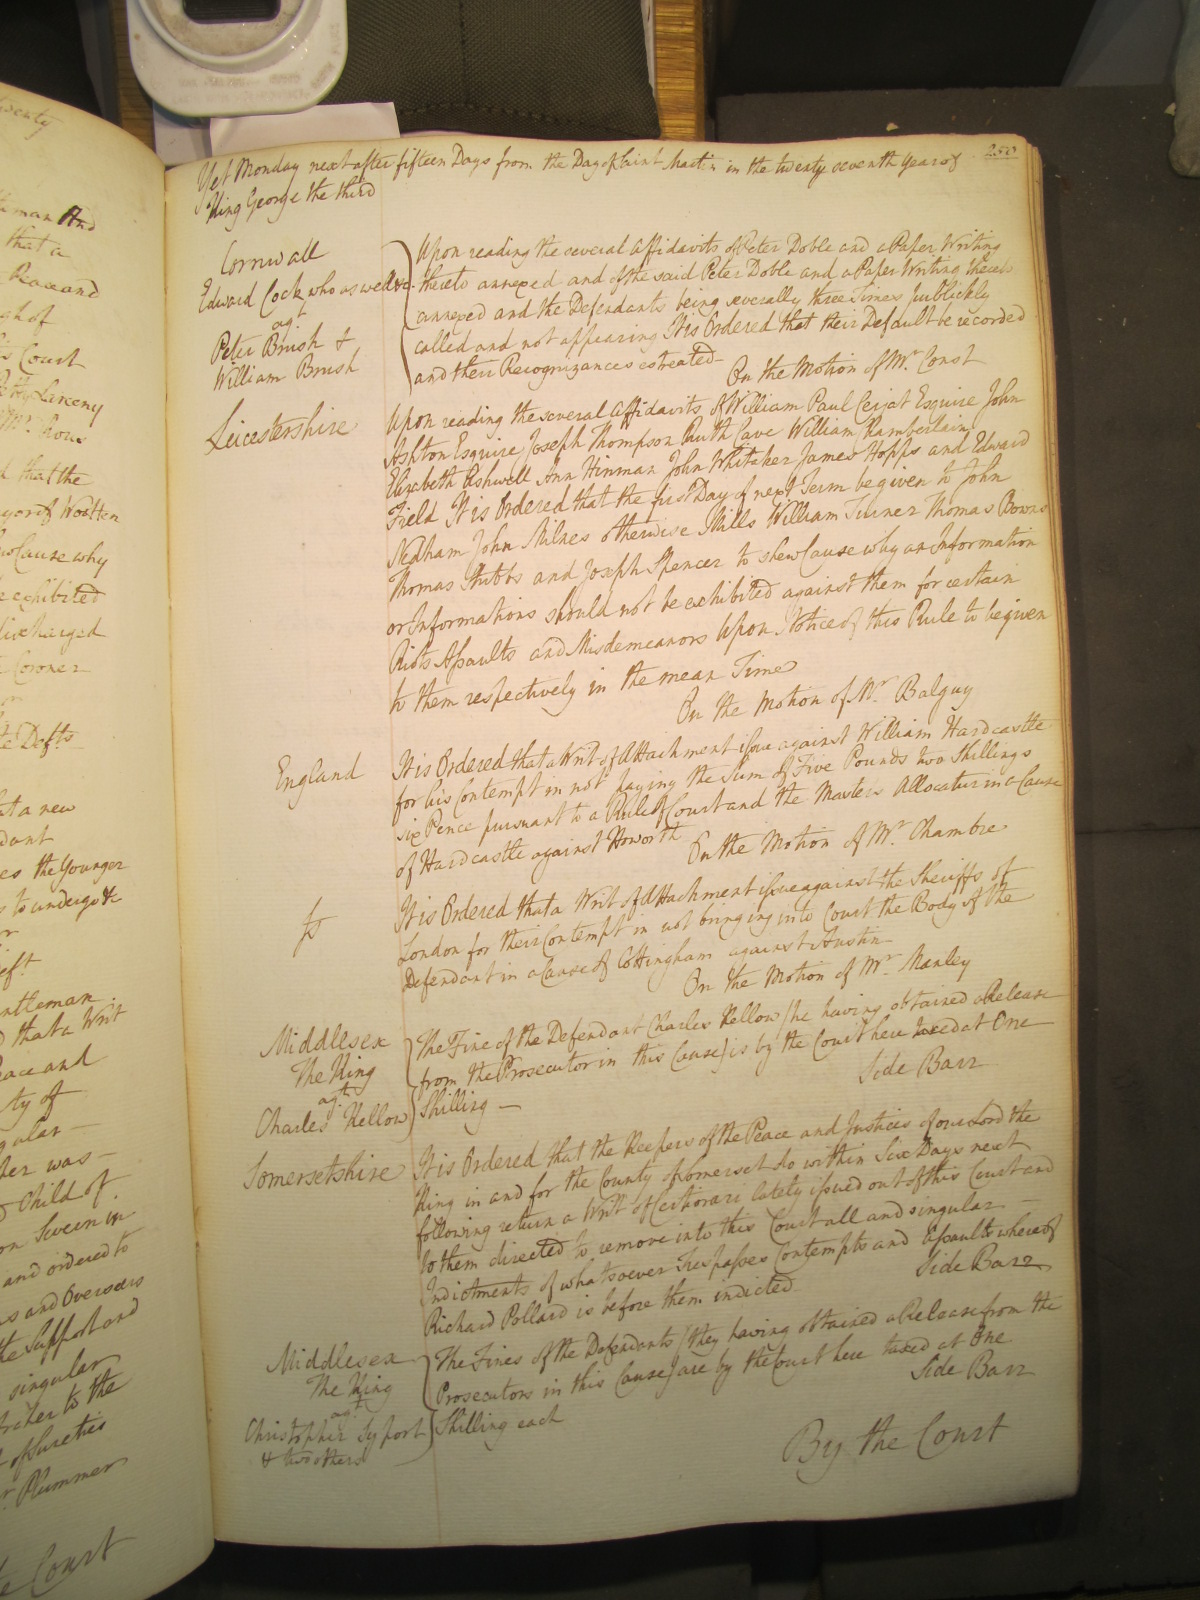 Twenty
And
that a
Race and
Court
Petty Larceny
that the
Cause why
exhibited
discharged
Coroner
Defts
a new
the Younger
to undergo &c
Gentleman
that a Writ
Peace and
was
Child of
Sworn in
and ordered to
and Overseers
the Support and
singular
to the
of Sureties
Plummer
Court
250
Yet Monday next after fifteen Days from the Day of Saint Martin in the twenty seventh Year of
King George the third
Cornwall
Edward Cock who as well &c.
agt
Peter Brush &
William Brush
Upon reading the several Affidavits of Peter Doble and a Paper Writing
thereto annexed and of the said Peter Doble and a Paper Writing thereto
annexed and the Defendants being severally three Times publickly
called and not appearing It is Ordered that their Default be recorded
and their Recognizances estreated
On the Motion of Mr. Const
Leicestershire
Upon reading the several Affidavits of William Paul Cerjat Esquire John
Ashton Esquire Joseph Thompson Ruth Cave William Chamberlain
Elizabeth Ashwell Ann Hinman John Whitaker James Hopps and Edward
Field It is Ordered that the first Day of next Term be given to John
Nedham John Milnes otherwise Mills William Turner Thomas Bowns
Thomas Stubbs and Joseph Spencer to shew Cause why an Information
or Informations should not be exhibited against them for certain
Riots Assaults and Misdemeanors Upon Notice of this Rule to be given
to them respectively in the mean Time
On the Motion of Mr. Balguy
England
It is Ordered that a Writ of Attachment issue against William Hardcastle
for his Contempt in not paying the Sum of Five Pounds two Shillings
six Pence pursuant to a Rule of Court and the Masters Allocatur in a Cause
of Hardcastle against Howorth
On the Motion of Mr. Chambre
It is Ordered that a Writ of Attachment issue against the Sheriffs of
London for their Contempt in not bringing into Court the Body of the
Defendant in a Cause of Cottingham against Austin
On the Motion of Mr. Manley
Middlesex
The King
agt
Charles Kellow
The Fine of the Defendant Charles Kellow (he having obtained a Release
from the Prosecutor in this Cause) is by the Court here taxed at One
Shilling
Side Barr
Somersetshire
It is Ordered that the Keepers of the Peace and Justices of our Lord the
King in and for the County of Somerset do within Six Days next
following return a Writ of Certiorari lately issued out of this Court and
to them directed to remove into this Court all and singular
Indictments of whatsoever Trespasses Contempts and Assaults whereof
Richard Pollard is before them indicted
Side Barr
Middlesex
The King
agt
Christopher Syport
& two others
The Fines of the Defendants (they having obtained a Release from the
Prosecutors in this Cause) are by the Court here taxed at One
Shilling each
Side Barr
By the Court